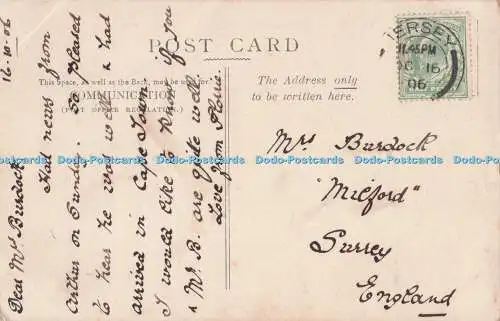 POST CARD
This space, as well as the Back, may be used for
COMMUNICATION
(POST OFFICE REGULATION).
The Address only
to be written here.
JERSEY
11.45PM
OC 16
06
16-10-06
Dear Mrs Burdock
Had news from
Arthur on Sunday. So pleased
to hear he was well & had
arrived in Cape Town.
I would like to know if you
& Mr. B. are quite well.
Love from Florrie.
Mrs Burdock
"Milford"
Surrey
England
Dodo-Postcards Dodo-Postcards Dodo-Postcards Dodo-Postcards Dodo-Postcards Dodo-Postcards